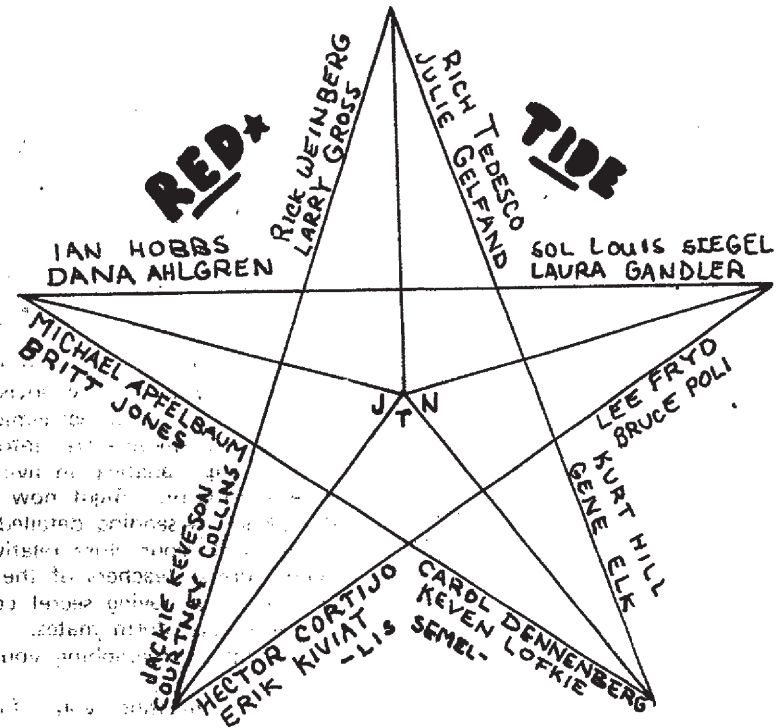 RED
TIDE
RICK WEINBERG
LARRY GROSS
RICH TEDESCO
JULIE GELFAND
IAN HOBBS
DANA AHLGREN
SOL LOUIS SIEGEL
LAURA GANDLER
MICHAEL APFELBAUM
BRITT JONES
J T N
LEE FRYD
BRUCE POLI
KURT HILL
GENE ELK
JACKIE KEVESON
COURTNEY COLLINS
HECTOR CORTIJO
ERIK KIVIAT
CAROL DENNENBERG
KEVEN LOFKIE
-LIS SEMEL-